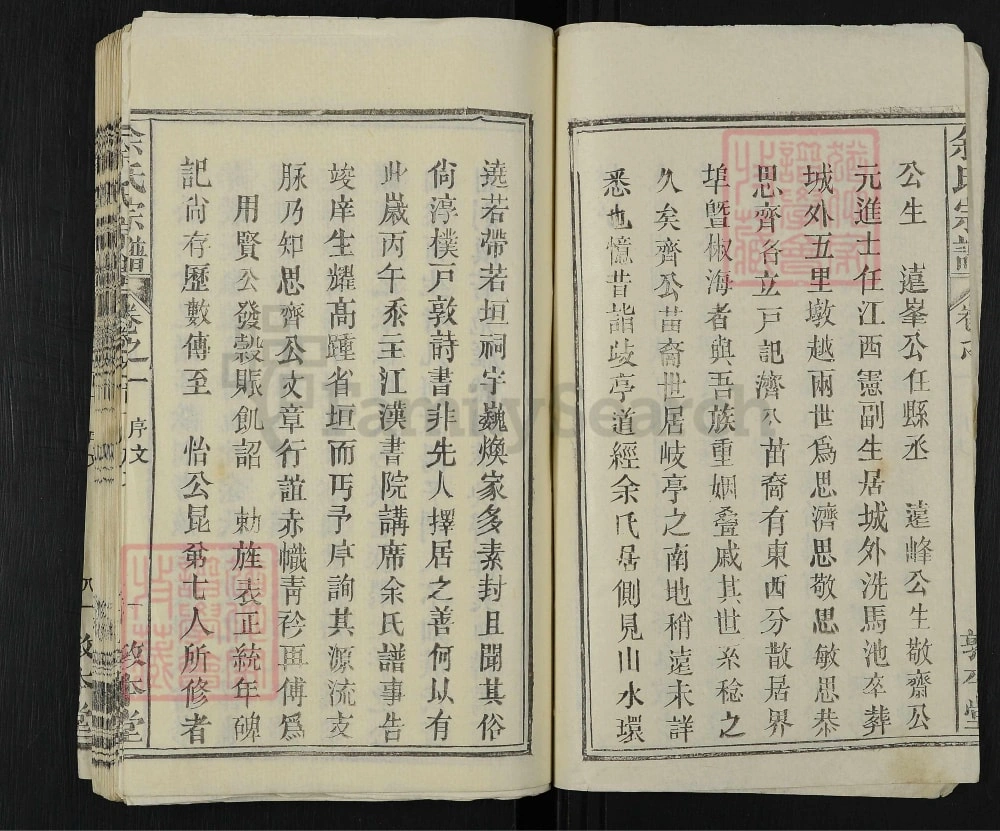 余氏宗譜
公生 遠峯公任縣丞 遠峰公生敬齋公
元進士任江西憲副生居城外洗馬池卒葬
城外五里墩越兩世爲思濟思敬思敏思恭
思齊各立戸記濟公苗裔有東西分散居界
埠暨椒海者與吾族重姻疊戚其世系稔之
久矣齊公苗裔世居岐亭之南地稍遠未詳
悉也憶昔詣歧亭道經余氏居側見山水環
遶若帶若垣祠宇巍煥家多素封且聞其俗
尙淳樸戸敦詩書非先人擇居之善何以有
此嵗丙午忝主江漢書院講席余氏譜事告
竣庠生耀髙踵省垣而丐予序詢其源流支
脈乃知思齊公文章行誼赤幟靑衿再傅爲
用賢公發榖賑飢詔 勅旌表正統年碑
記尙存歷數傅至 怡公昆弟七人所修者
余氏宗譜 卷之一 序文 敦本堂
FamilySearch